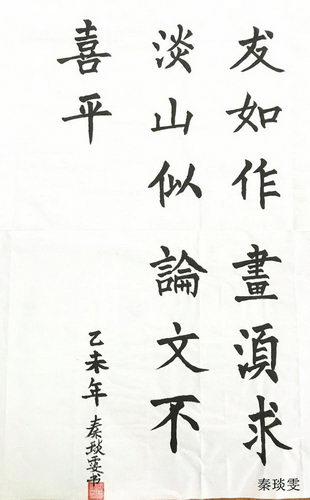 友如作畫湏求
淡山似論文不
喜平
乙未年
秦琰雯书
秦琰雯